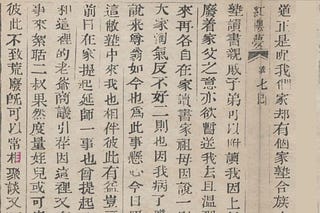 道正是呢我們家却有個家塾合族
紅樓夢 第七回
塾讀書親戚子弟可以附讀我因上
廢着家父之意亦欲暫送我去且溫
來再各自在家讀書家祖母因說一
大家淘氣反不好二則也因我病了
說來尊翁如今也爲此事懸心今日
這敝塾中來我也相伴彼此有益豈
前日在家提起延師一事也曾提起
和這裡的老爺商議引荐因這里又
事來絮聒二叔果然度量姪兒或可
彼此不致荒廢旣可以常相聚談又